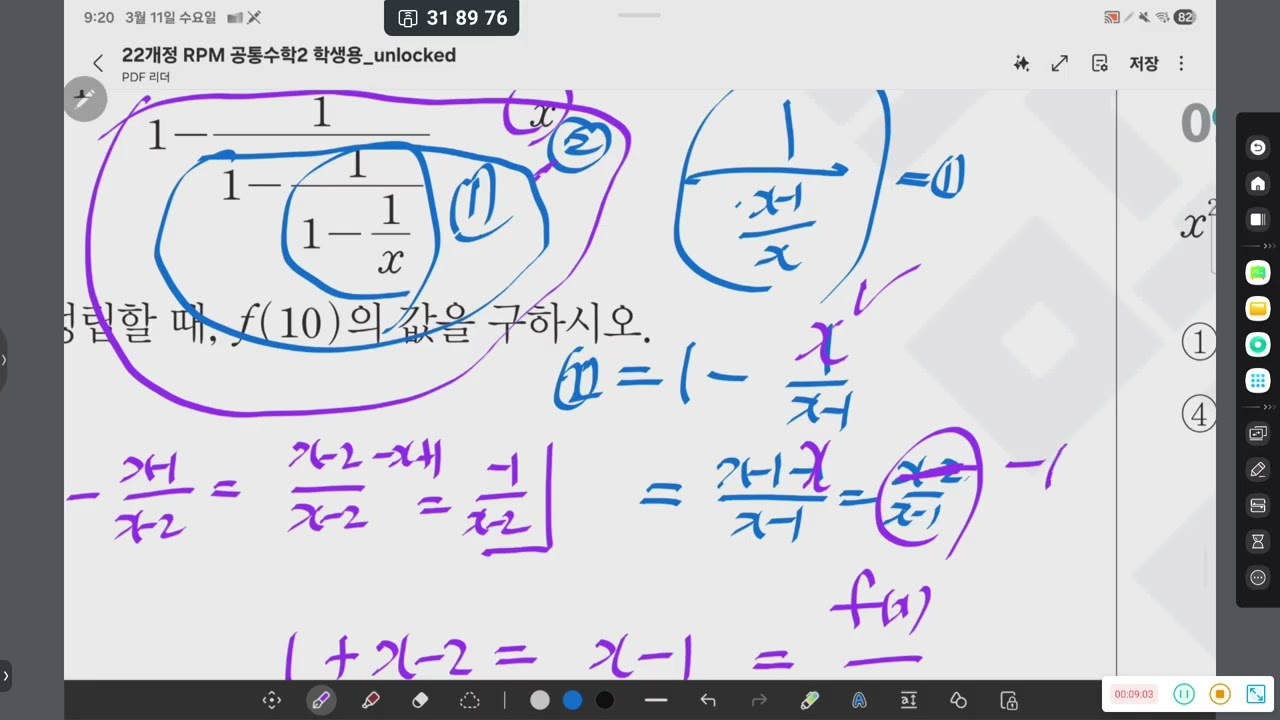 9:20 3월 11일 수요일
31 89 76
82
22개정 RPM 공통수학2 학생용_unlocked
PDF 리더
저장
1 - 1 / (1 - 1 / (1 - 1/x))
x
②
①
1 / ((x-1)/x) = ①
0
x²
립할 때, f(10)의 값을 구하시오.
① = 1 - x/(x-1)
①
④
- (x-1)/(x-2) = (x-2-x+1)/(x-2) = -1/(x-2)
= (x-1-x)/(x-1) = (x-2)/(x-1) -1
f(x)
1+x-2 = x-1 =
00:09:03